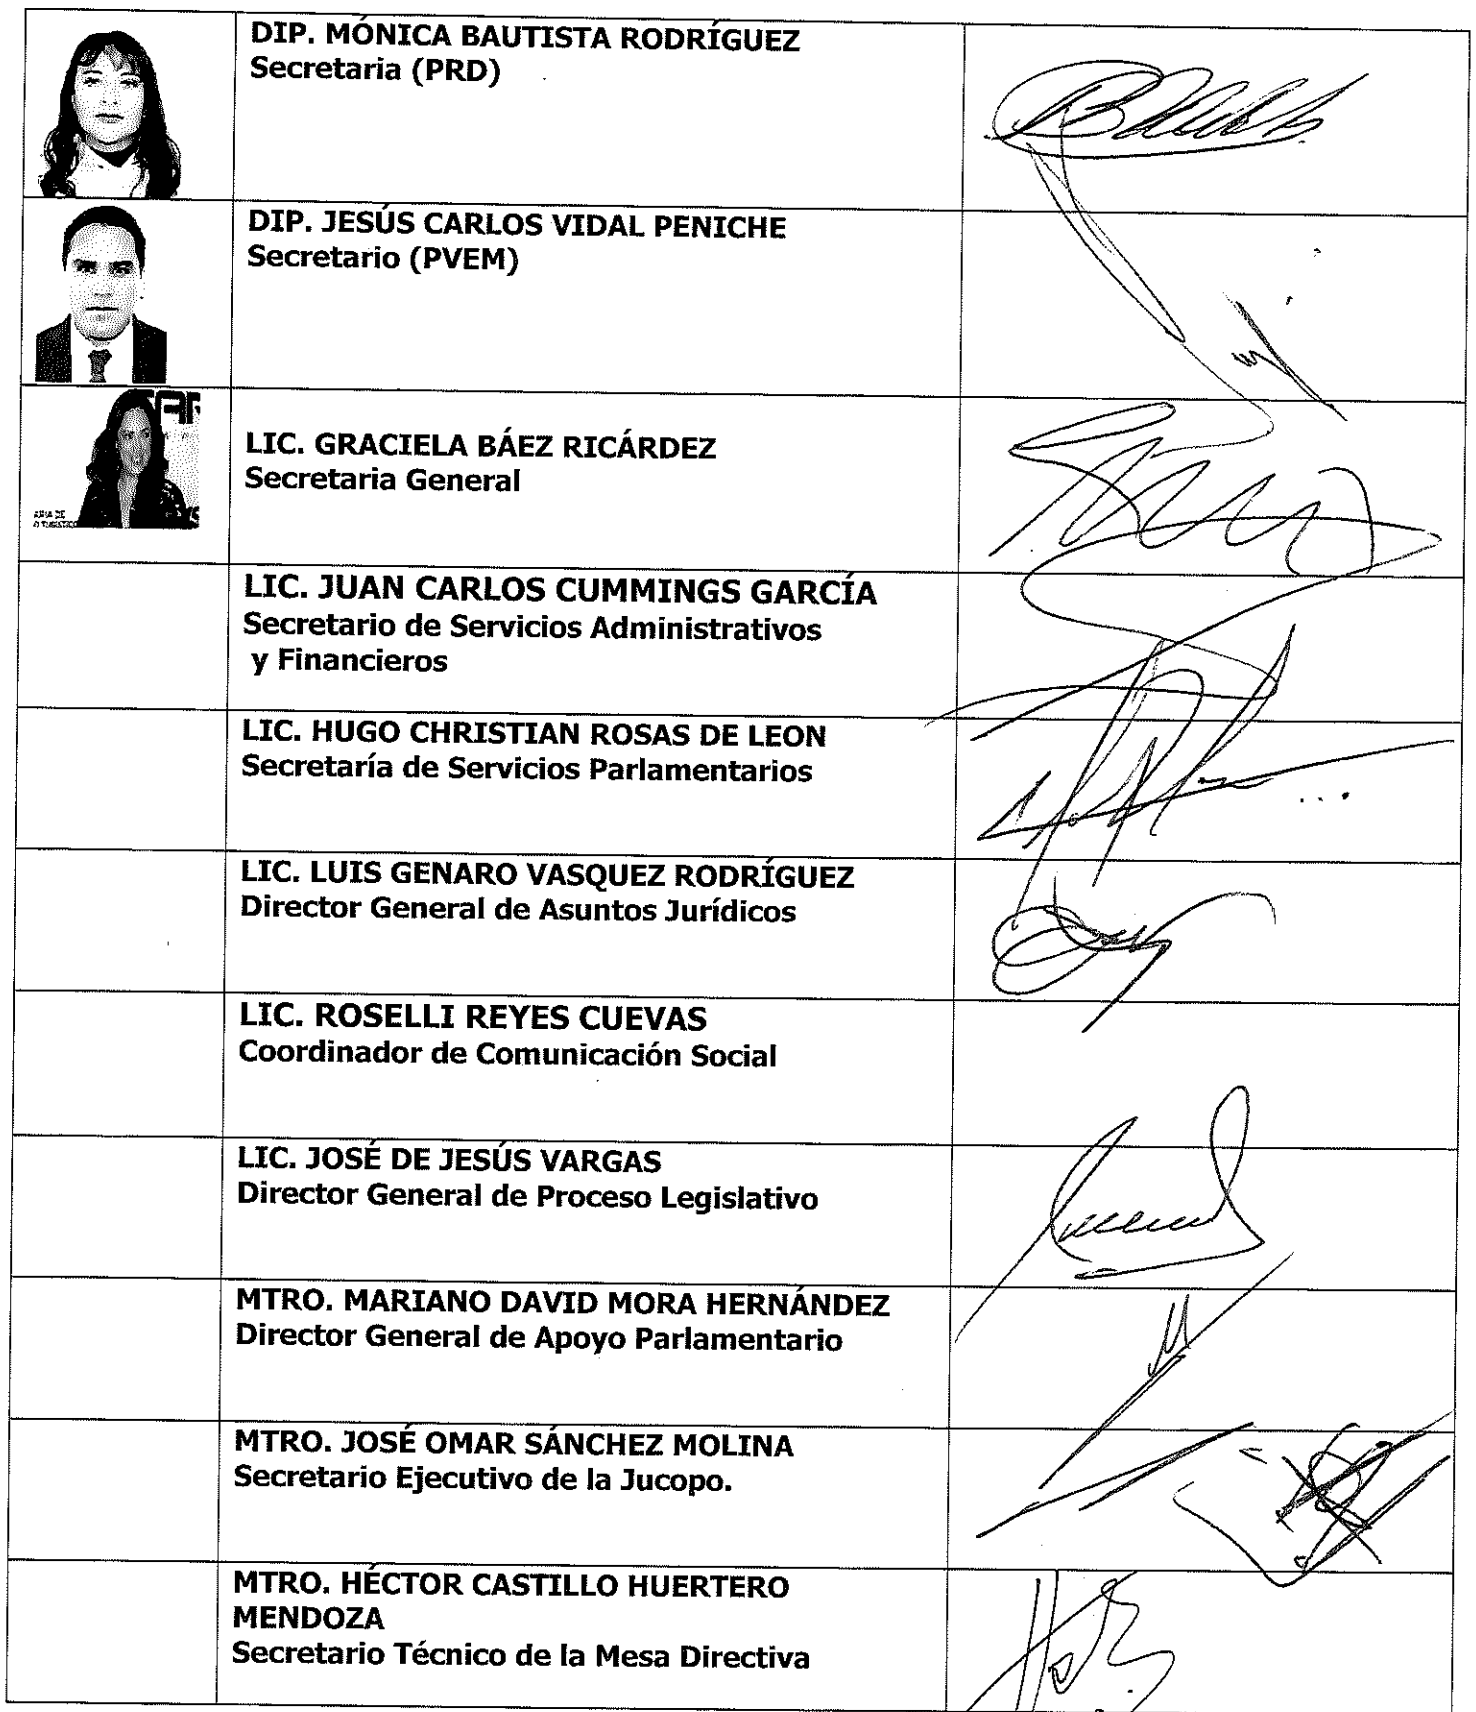 DIP. MÓNICA BAUTISTA RODRÍGUEZ
Secretaria (PRD)
DIP. JESÚS CARLOS VIDAL PENICHE
Secretario (PVEM)
LIC. GRACIELA BÁEZ RICÁRDEZ
Secretaria General
LIC. JUAN CARLOS CUMMINGS GARCÍA
Secretario de Servicios Administrativos
y Financieros
LIC. HUGO CHRISTIAN ROSAS DE LEON
Secretaría de Servicios Parlamentarios
LIC. LUIS GENARO VASQUEZ RODRÍGUEZ
Director General de Asuntos Jurídicos
LIC. ROSELLI REYES CUEVAS
Coordinador de Comunicación Social
LIC. JOSÉ DE JESÚS VARGAS
Director General de Proceso Legislativo
MTRO. MARIANO DAVID MORA HERNÁNDEZ
Director General de Apoyo Parlamentario
MTRO. JOSÉ OMAR SÁNCHEZ MOLINA
Secretario Ejecutivo de la Jucopo.
MTRO. HÉCTOR CASTILLO HUERTERO
MENDOZA
Secretario Técnico de la Mesa Directiva